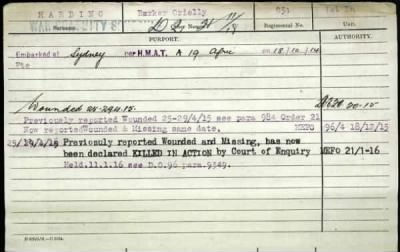 HARDING Barker Crielly 951 1st Bn
Surname. Regimental No. Unit.
PURPORT. AUTHORITY.
Embarked at Sydney per H.M.A.T. A 19 Afric on 18/10/14
Pte
Wounded 25-29.4.15.
Previously reported Wounded 25-29/4/15 see para 984 Order 21
Now reported Wounded & Missing same date. MEFO 96/4 18/12/15
Previously reported Wounded and Missing, has now
been declared KILLED IN ACTION by Court of Enquiry MEFO 21/1-16
Held.11.1.16 see D.O.96 para.9349.